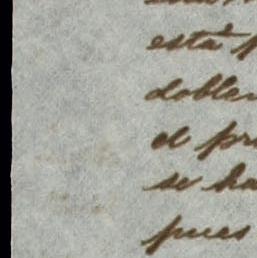 está p
doblar
el pr
se ha
pues